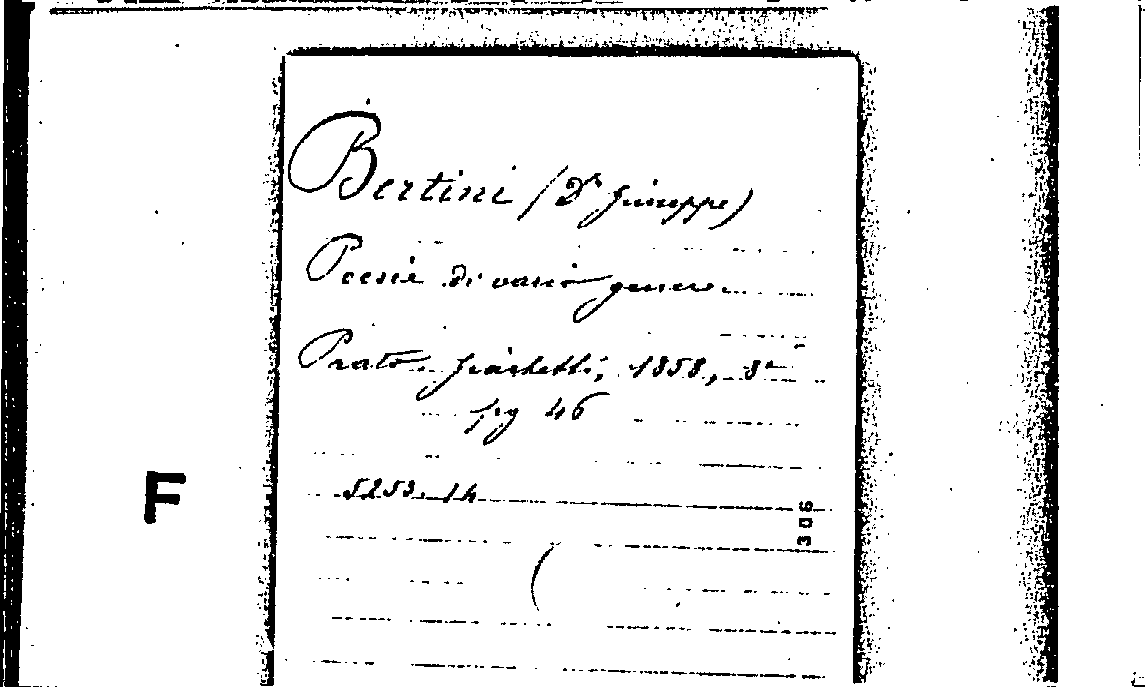 Bertini (Dr Giuseppe)
Poesie di vario genere.
Prato. Giachetti, 1858, 8°
pg 46
5253. 14
F
306